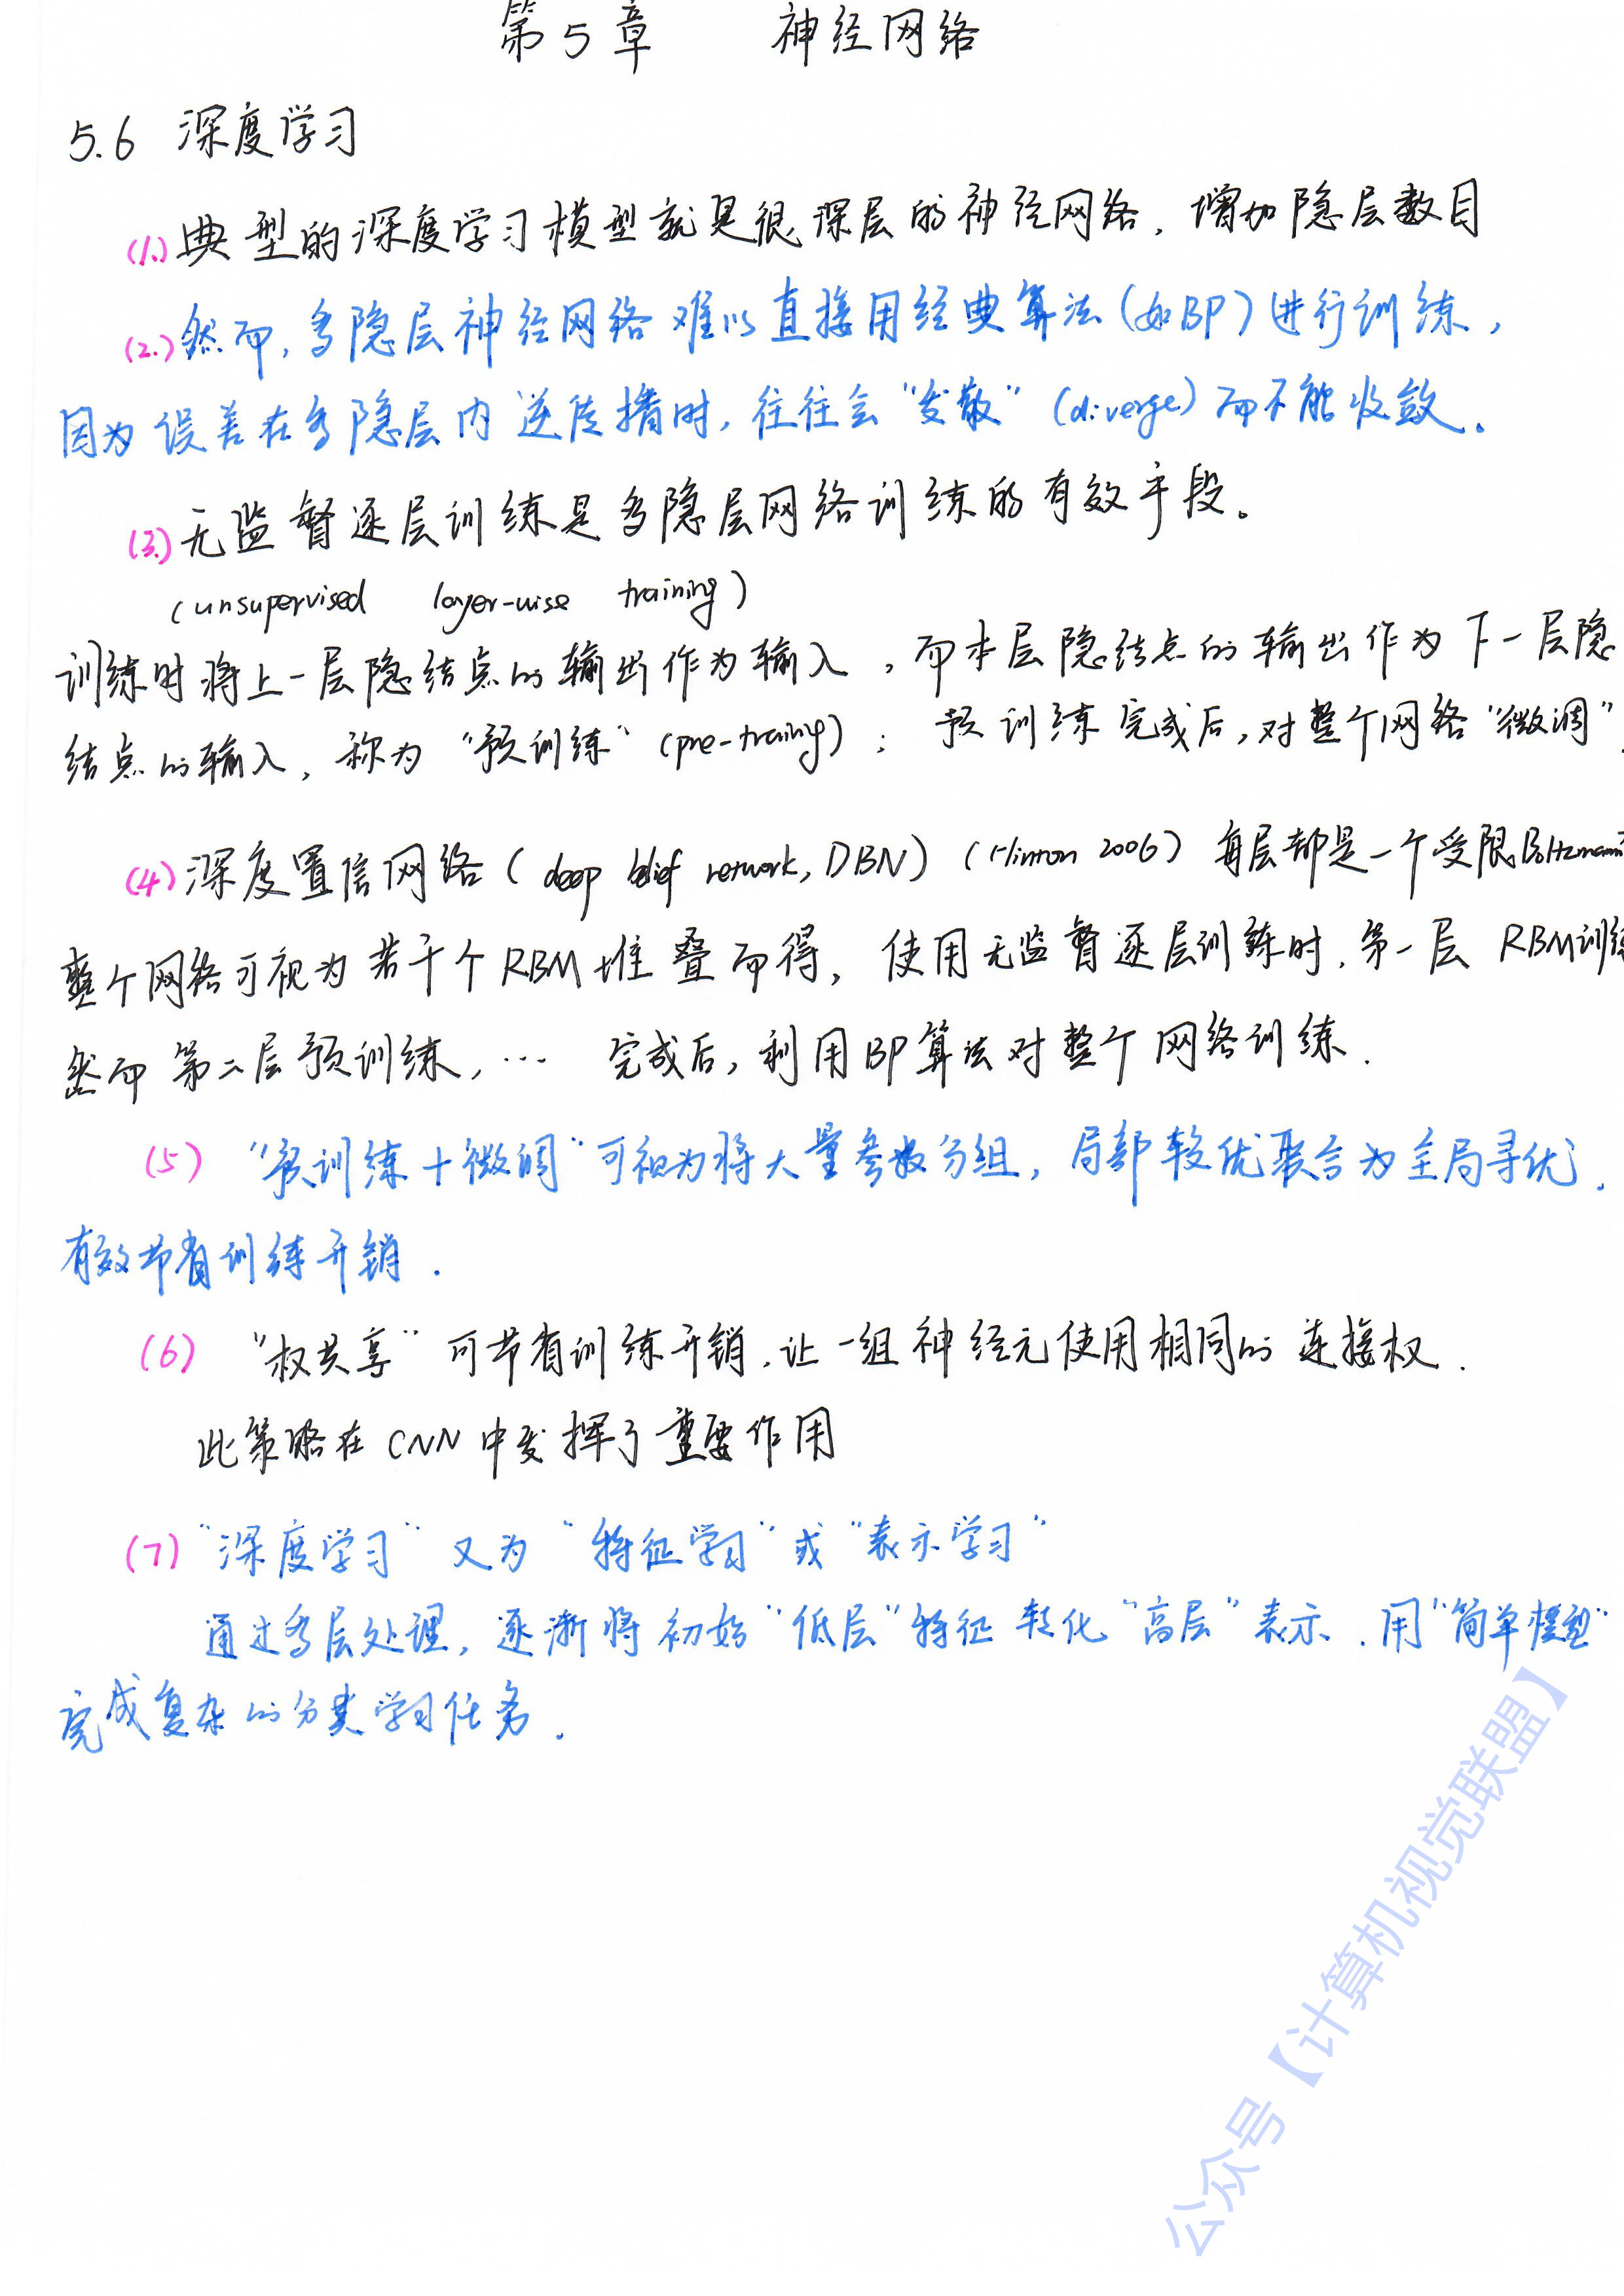 第5章 神经网络
5.6 深度学习
(1.) 典型的深度学习模型就是很深层的神经网络. 增加隐层数目
(2.) 然而, 多隐层神经网络难以直接用经典算法(如BP)进行训练,
因为误差在多隐层内逆传播时, 往往会“发散”(diverge)而不能收敛。
(3.) 无监督逐层训练是多隐层网络训练的有效手段。
(unsupervised layer-wise training)
训练时将上一层隐结点的输出作为输入, 而本层隐结点的输出作为下一层隐
结点的输入, 称为“预训练”(pre-traing); 预训练完成后, 对整个网络“微调”
(4) 深度置信网络(deep belief network, DBN)(Hinton 2006) 每层都是一个受限Boltzmann
整个网络可视为若干个RBM堆叠而得, 使用无监督逐层训练时. 第一层 RBM训练
然而第二层预训练, … 完成后, 利用BP算法对整个网络训练.
(5) “预训练+微调”可视为将大量参数分组, 局部较优聚合为全局寻优.
有效节省训练开销.
(6) “权共享”可节省训练开销. 让一组神经元使用相同的连接权.
此策略在CNN中发挥了重要作用
(7) “深度学习”又为“特征学习”或“表示学习”
通过多层处理, 逐渐将初始“低层”特征转化“高层”表示. 用“简单模型”
完成复杂的分类学习任务.
公众号【计算机视觉联盟】